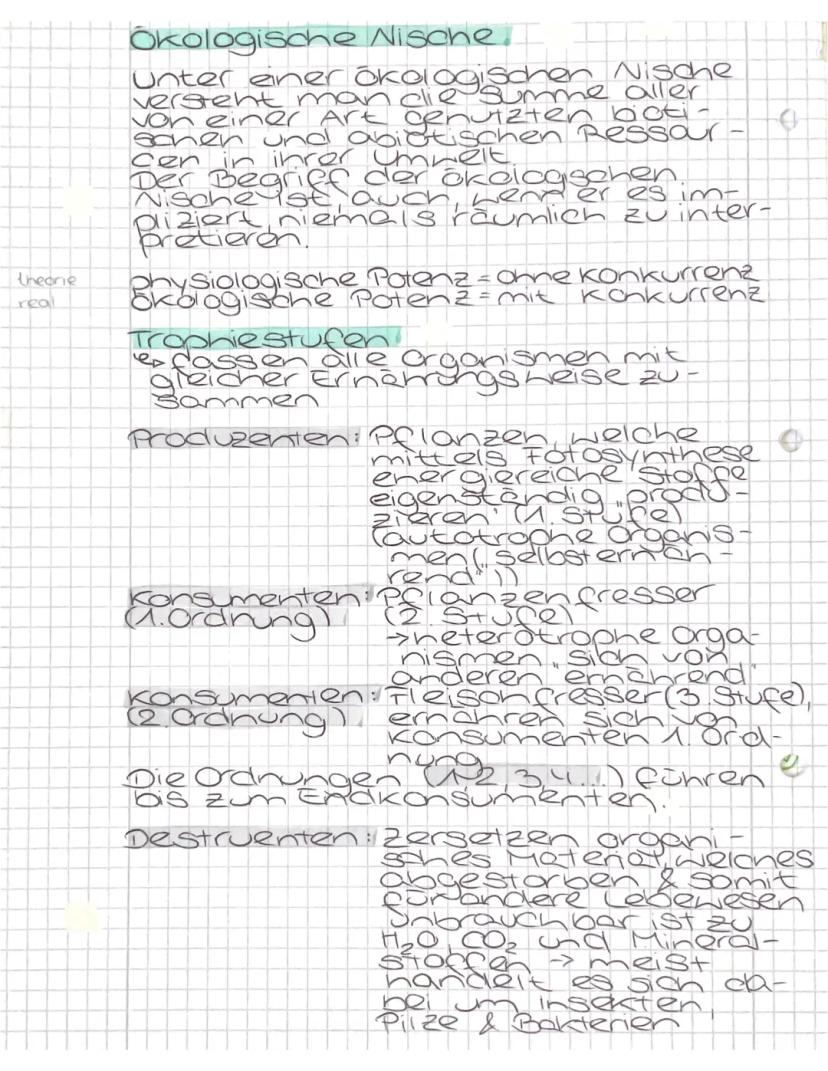 Ökologische Nische
Unter einer ökologischen Nische
versteht man die Summe aller
von einer Art genutzten bioti-
schen und abiotischen Ressour-
cen in ihrer Umwelt.
Der Begriff der ökologschen
Nische ist, auch wenn er es im-
pliziert, niemals räumlich zu inter-
pretieren.
theorie physiologische Potenz = ohne Konkurrenz
real ökologische Potenz = mit Konkurrenz
Trophiestufen
↳ fassen alle Organismen mit
gleicher Ernährungsweise zu-
sammen
Produzenten: Pflanzen, welche
mittels Fotosynthese
energiereiche Stoffe
eigenständig „produ-
zieren" (1. Stufe)
(autotrophe Organis-
men („selbsternäh-
rend"))
Konsumenten: Pflanzenfresser
(1. Ordnung) (2. Stufe)
→ heterotrophe Orga-
nismen „sich von
anderen ernährend"
Konsumenten: Fleischfresser (3. Stufe),
(2. Ordnung) ernähren sich von
Konsumenten 1. Ord-
nung
Die Ordnungen (1, 2, 3, 4...) führen
bis zum Endkonsumenten.
Destruenten: zersetzen organi-
sches Material, welches
abgestorben & somit
für andere Lebewesen
unbrauchbar ist zu
H₂O, CO₂ und Mineral-
stoffen → meist
handelt es sich da-
bei um Insekten,
Pilze & Bakterien